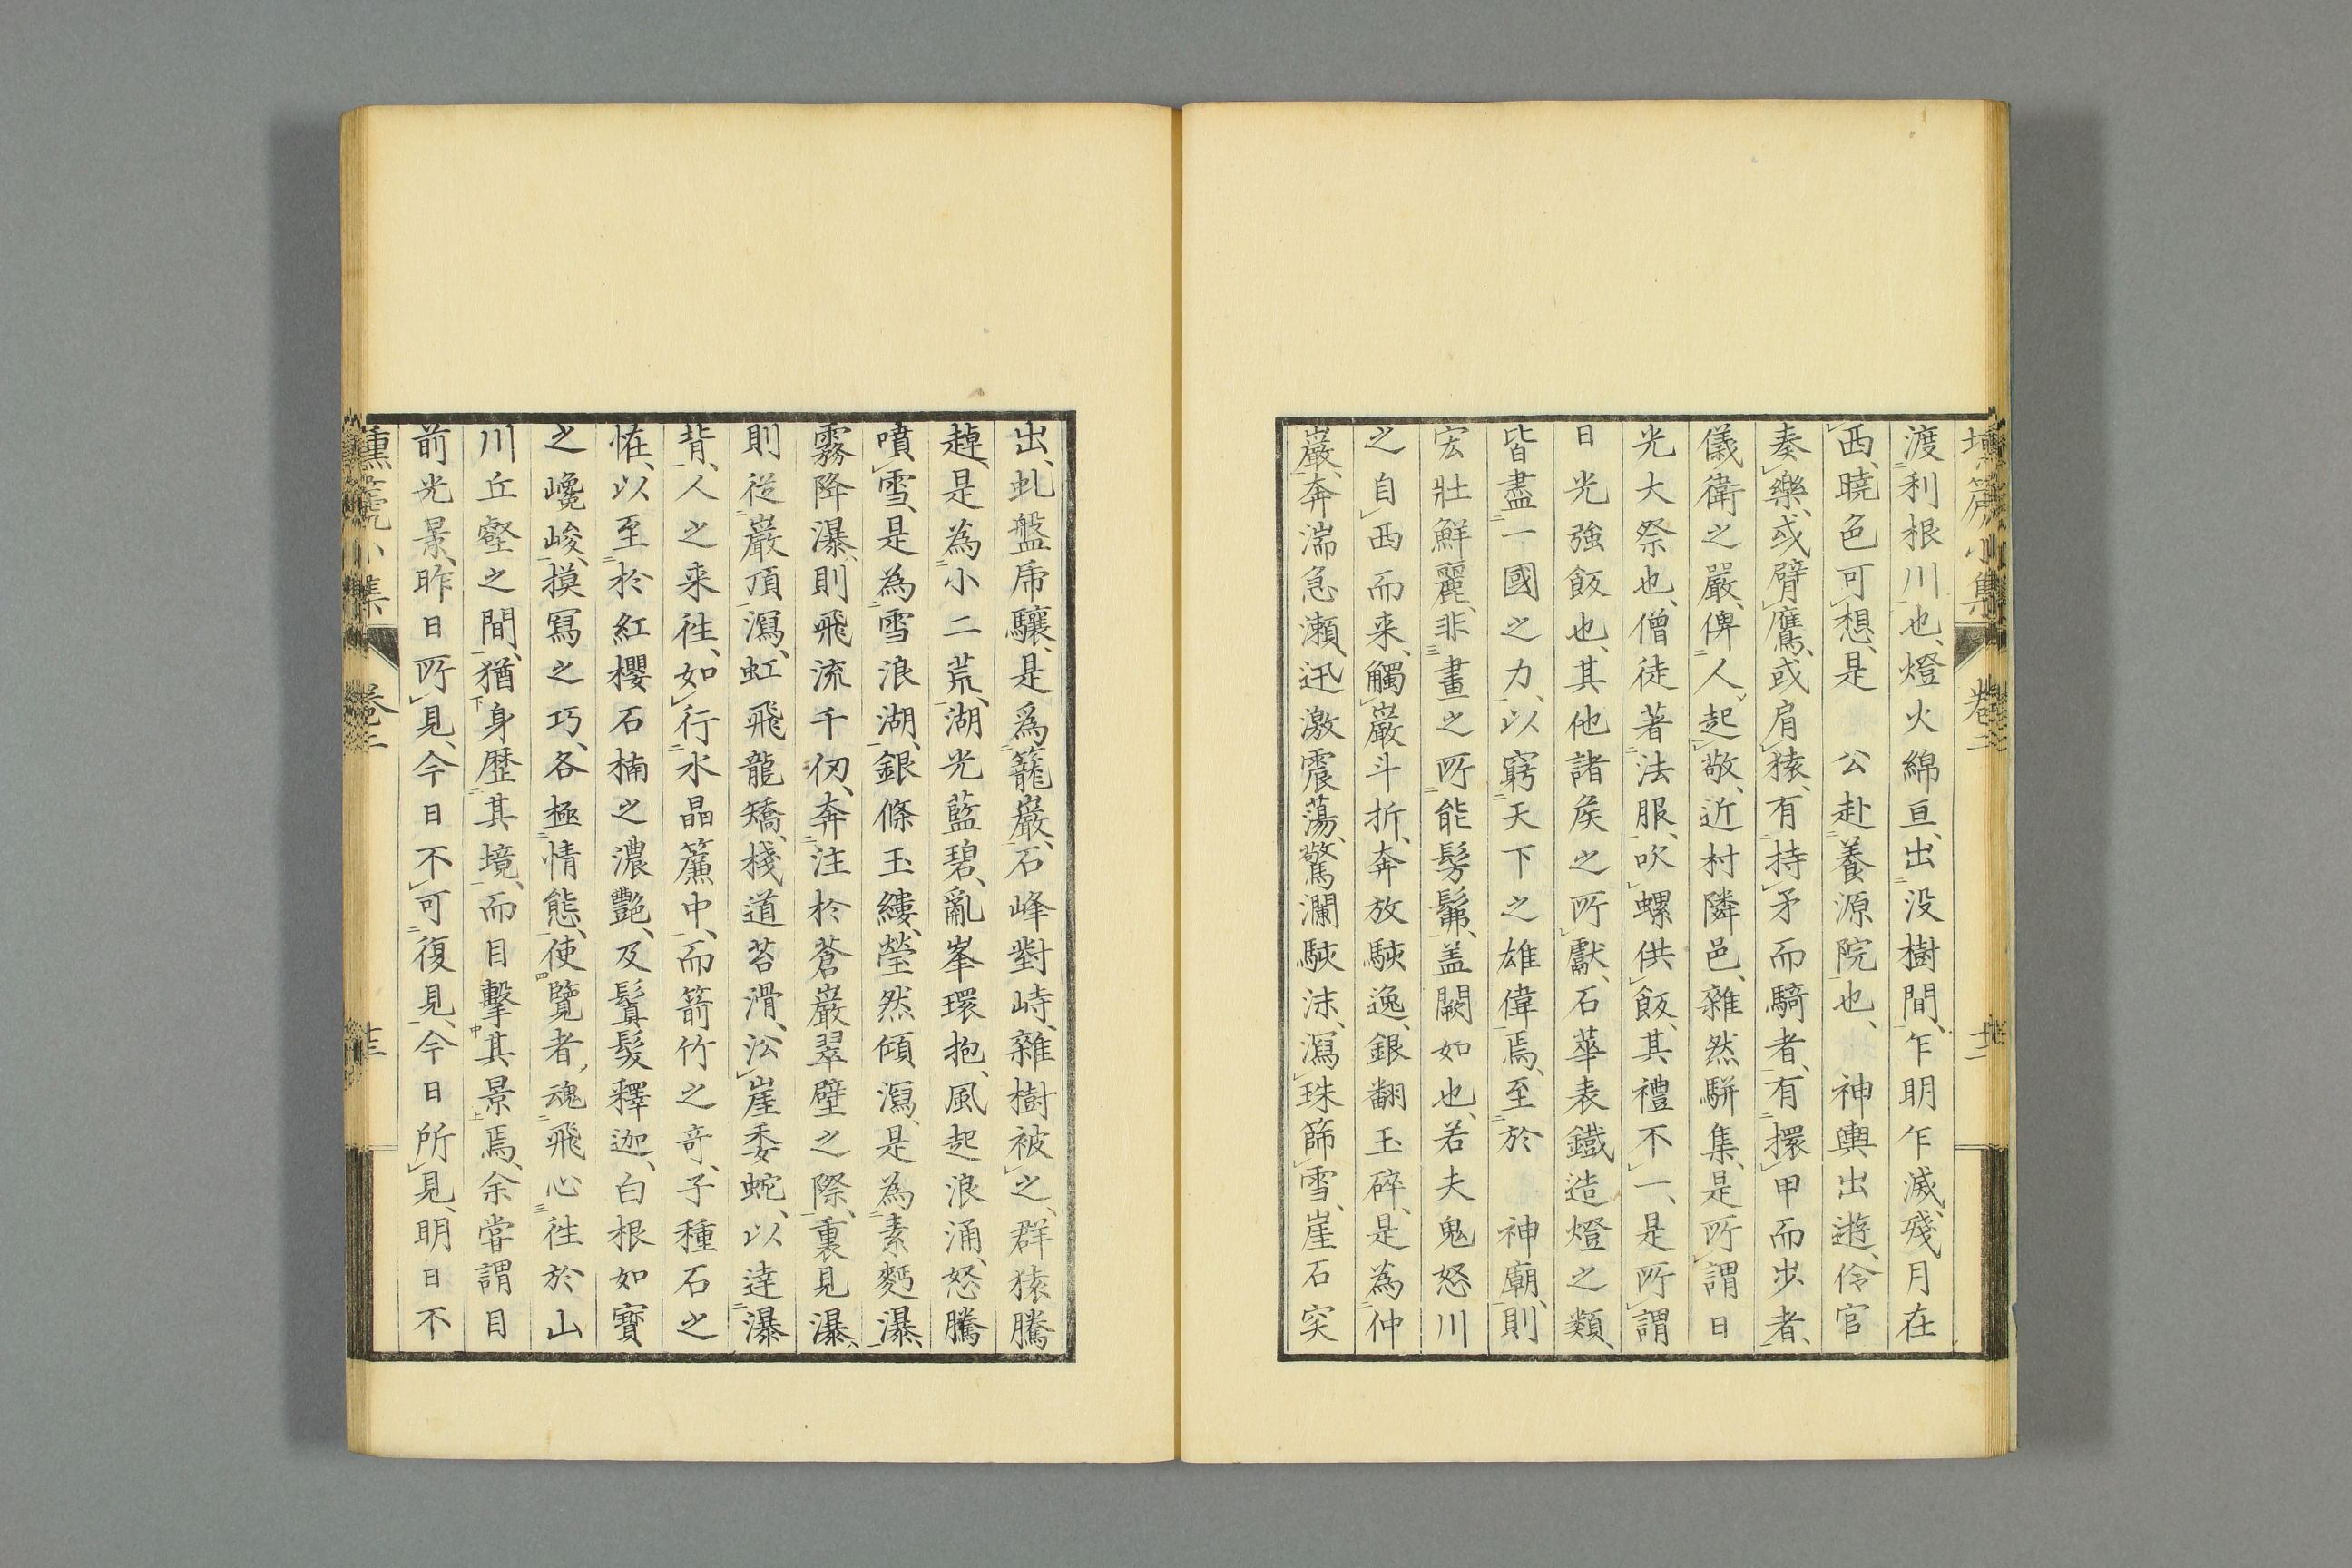 渡利根川也、燈火綿亘、出没樹間、乍明乍滅、殘月在
西、曉色可想、是　公赴養源院也、　神輿出遊、伶官
奏樂、或臂鷹、或肩猿、有持矛而騎者、有擐甲而步者、
儀衛之嚴、俾人起敬、近村隣邑、雜然駢集、是所謂日
光大祭也、僧徒著法服、吹螺供飯、其禮不一、是所謂
日光強飯也、其他諸矦之所獻、石華表鐵造燈之類、
皆盡一國之力、以窮天下之雄偉焉、至於　神廟、則
宏壯鮮麗、非畫之所能髣髴、盖闕如也、若夫鬼怒川
之自西而来、觸巖斗折、奔放駃逸、銀翻玉碎、是為仲
巖、奔湍急瀬、迅激震蕩、驚瀾駃沫、瀉珠篩雪、崖石突
出、虬盤乕驤、是爲籠巖、石峰對峙、雜樹被之、群猿騰
趠、是為小二荒、湖光藍碧、亂峯環抱、風起浪涌、怒騰
噴雪、是為雪浪湖、銀條玉縷、瑩然傾瀉、是為素麪瀑、
霧降瀑、則飛流千仞、奔注於蒼巖翠壁之際、裏見瀑、
則從巖頂瀉、虹飛龍矯、棧道苔滑、㳂崖委蛇、以達瀑
背、人之来徃、如行水晶簾中、而箭竹之竒、子種石之
恠、以至於紅櫻石楠之濃艷、及鬒髮釋迦、白根如寳
之巉峻、摸寫之巧、各極情態、使覽者、魂飛心徃於山
川丘壑之間、猶身歷其境、而目擊其景焉、余嘗謂目
前光景、昨日所見、今日不可復見、今日所見、明日不